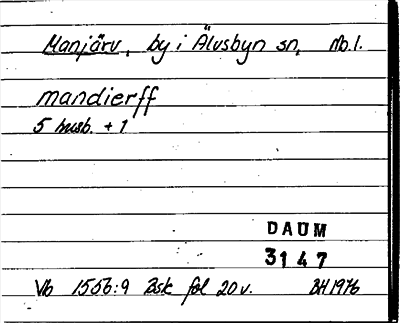 Manjärv, by i Älvsbyn sn, Nb.l.
mandierff
5 husb. + 1
DAUM
3147
Vb 1556:9 Bsk fol 20 v. BH 1976